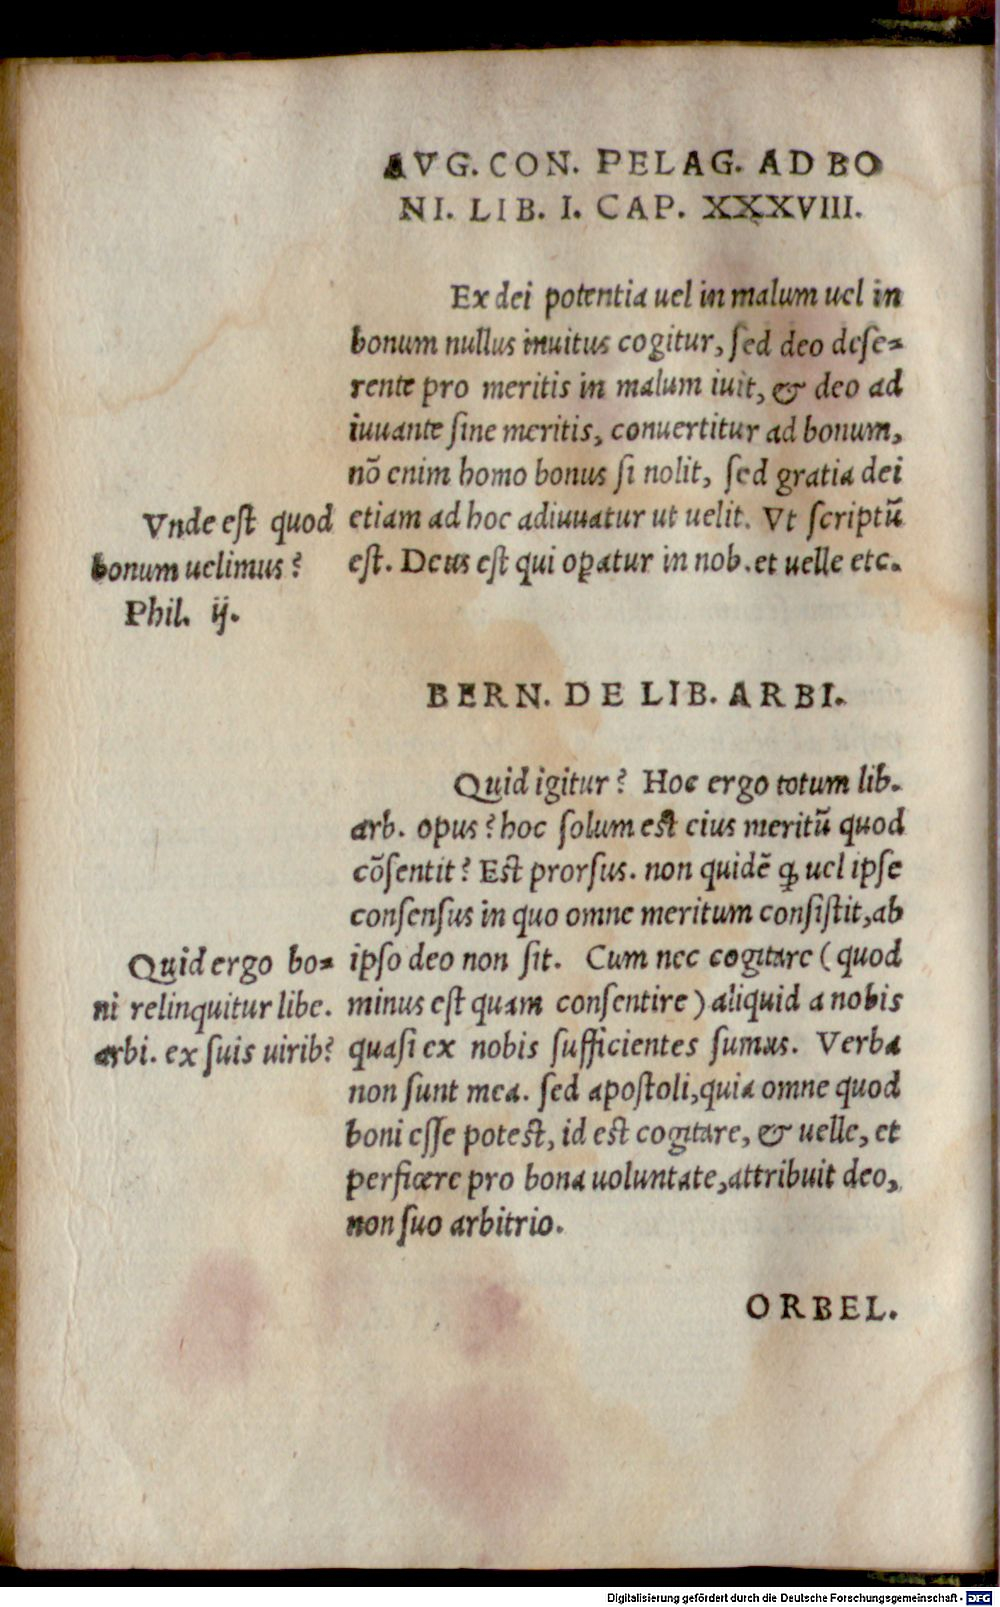 AVG. CON. PELAG. AD BO
NI. LIB. I. CAP. XXXVIII.
Ex dei potentia uel in malum uel in
bonum nullus inuitus cogitur, sed deo dese-
rente pro meritis in malum iuit, & deo ad
iuuante sine meritis, conuertitur ad bonum,
nō enim homo bonus si nolit, sed gratia dei
etiam ad hoc adiuuatur ut uelit. Vt scriptū
est. Deus est qui oꝑatur in nob. et uelle etc.
Vnde est quod
bonum uelimus?
Phil. ij.
BERN. DE LIB. ARBI.
Quid igitur? Hoc ergo totum lib.
arb. opus? hoc solum est eius meritū quod
cōsentit? Est prorsus. non quidē ꝙ uel ipse
consensus in quo omne meritum consistit, ab
ipso deo non sit. Cum nec cogitare (quod
minus est quam consentire) aliquid a nobis
quasi ex nobis sufficientes sumus. Verba
non sunt mea. sed apostoli, quia omne quod
boni esse potest, id est cogitare, & uelle, et
perficere pro bona uoluntate, attribuit deo,
non suo arbitrio.
Quid ergo bo-
ni relinquitur libe.
arbi. ex suis uirib?
ORBEL.
Digitalisierung gefördert durch die Deutsche Forschungsgemeinschaft - DFG